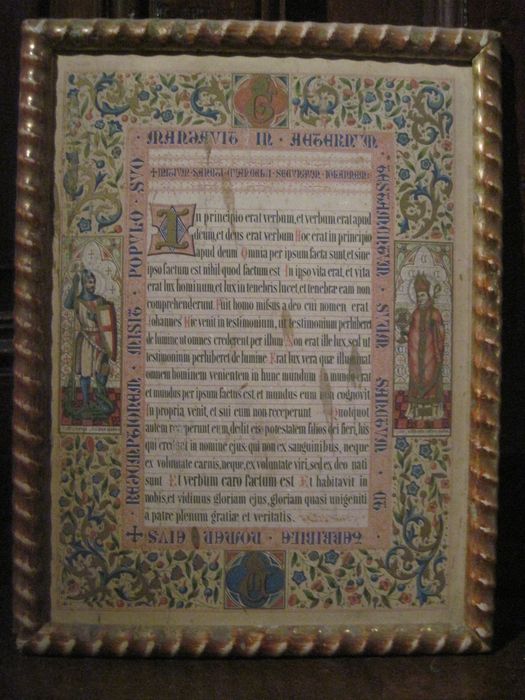 MANDAVIT IN AETERNUM
TESTAMENTUM SUUM SANCTUM ET
TERRIBILE NOMEN EIUS
REDEMPTIONEM MISIT POPULO SUO
INITIUM SANCTI EVANGELII SECUNDUM IOHANNEM
In principio erat verbum, et verbum erat apud
deum, et deus erat verbum Hoc erat in principio
apud deum Omnia per ipsum facta sunt, et sine
ipso factum est nihil quod factum est In ipso vita erat, et vita
erat lux hominum, et lux in tenebris lucet, et tenebrae eam non
comprehenderunt Fuit homo missus a deo cui nomen erat
Iohannes Hic venit in testimonium, ut testimonium perhiberet
de lumine ut omnes crederent per illum Non erat ille lux, sed ut
testimonium perhiberet de lumine Erat lux vera quæ illuminat
omnem hominem venientem in hunc mundum In mundo erat
et mundus per ipsum factus est et mundus eum non cognovit
In propria venit, et sui eum non receperunt Quotquot
autem receperunt eum, dedit eis potestatem filios dei fieri, his
qui credunt in nomine ejus: qui non ex sanguinibus, neque
ex voluntate carnis, neque, ex voluntate viri, sed ex deo nati
sunt Et verbum caro factum est Et habitavit in
nobis, et vidimus gloriam ejus, gloriam quasi unigeniti
a patre plenum gratiæ et veritatis.